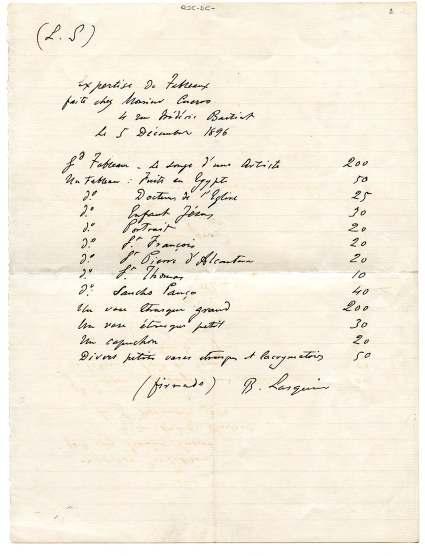 QSC-DC-
2
(L. S)
Expertise de Tableaux
faite chez Monsieur Cuervo
4 rue Frédéric Bastiat
le 5 Décembre 1896
Gd Tableau - Le songe d'une Artiste 200
Un Tableau : Fuite en Egypte 50
do Docteur de l'Eglise 25
do Enfant Jésus 30
do Portrait 20
do St. François 20
do St. Pierre d'Alcantara 20
do St. Thomas 10
do Sancho Pança 40
Un vase étrusque grand 200
Un vase étrusque petit 30
Un capuchon 20
Divers petits vases étrusques et lacrymatoires 50
(firmado) B. Lasquin